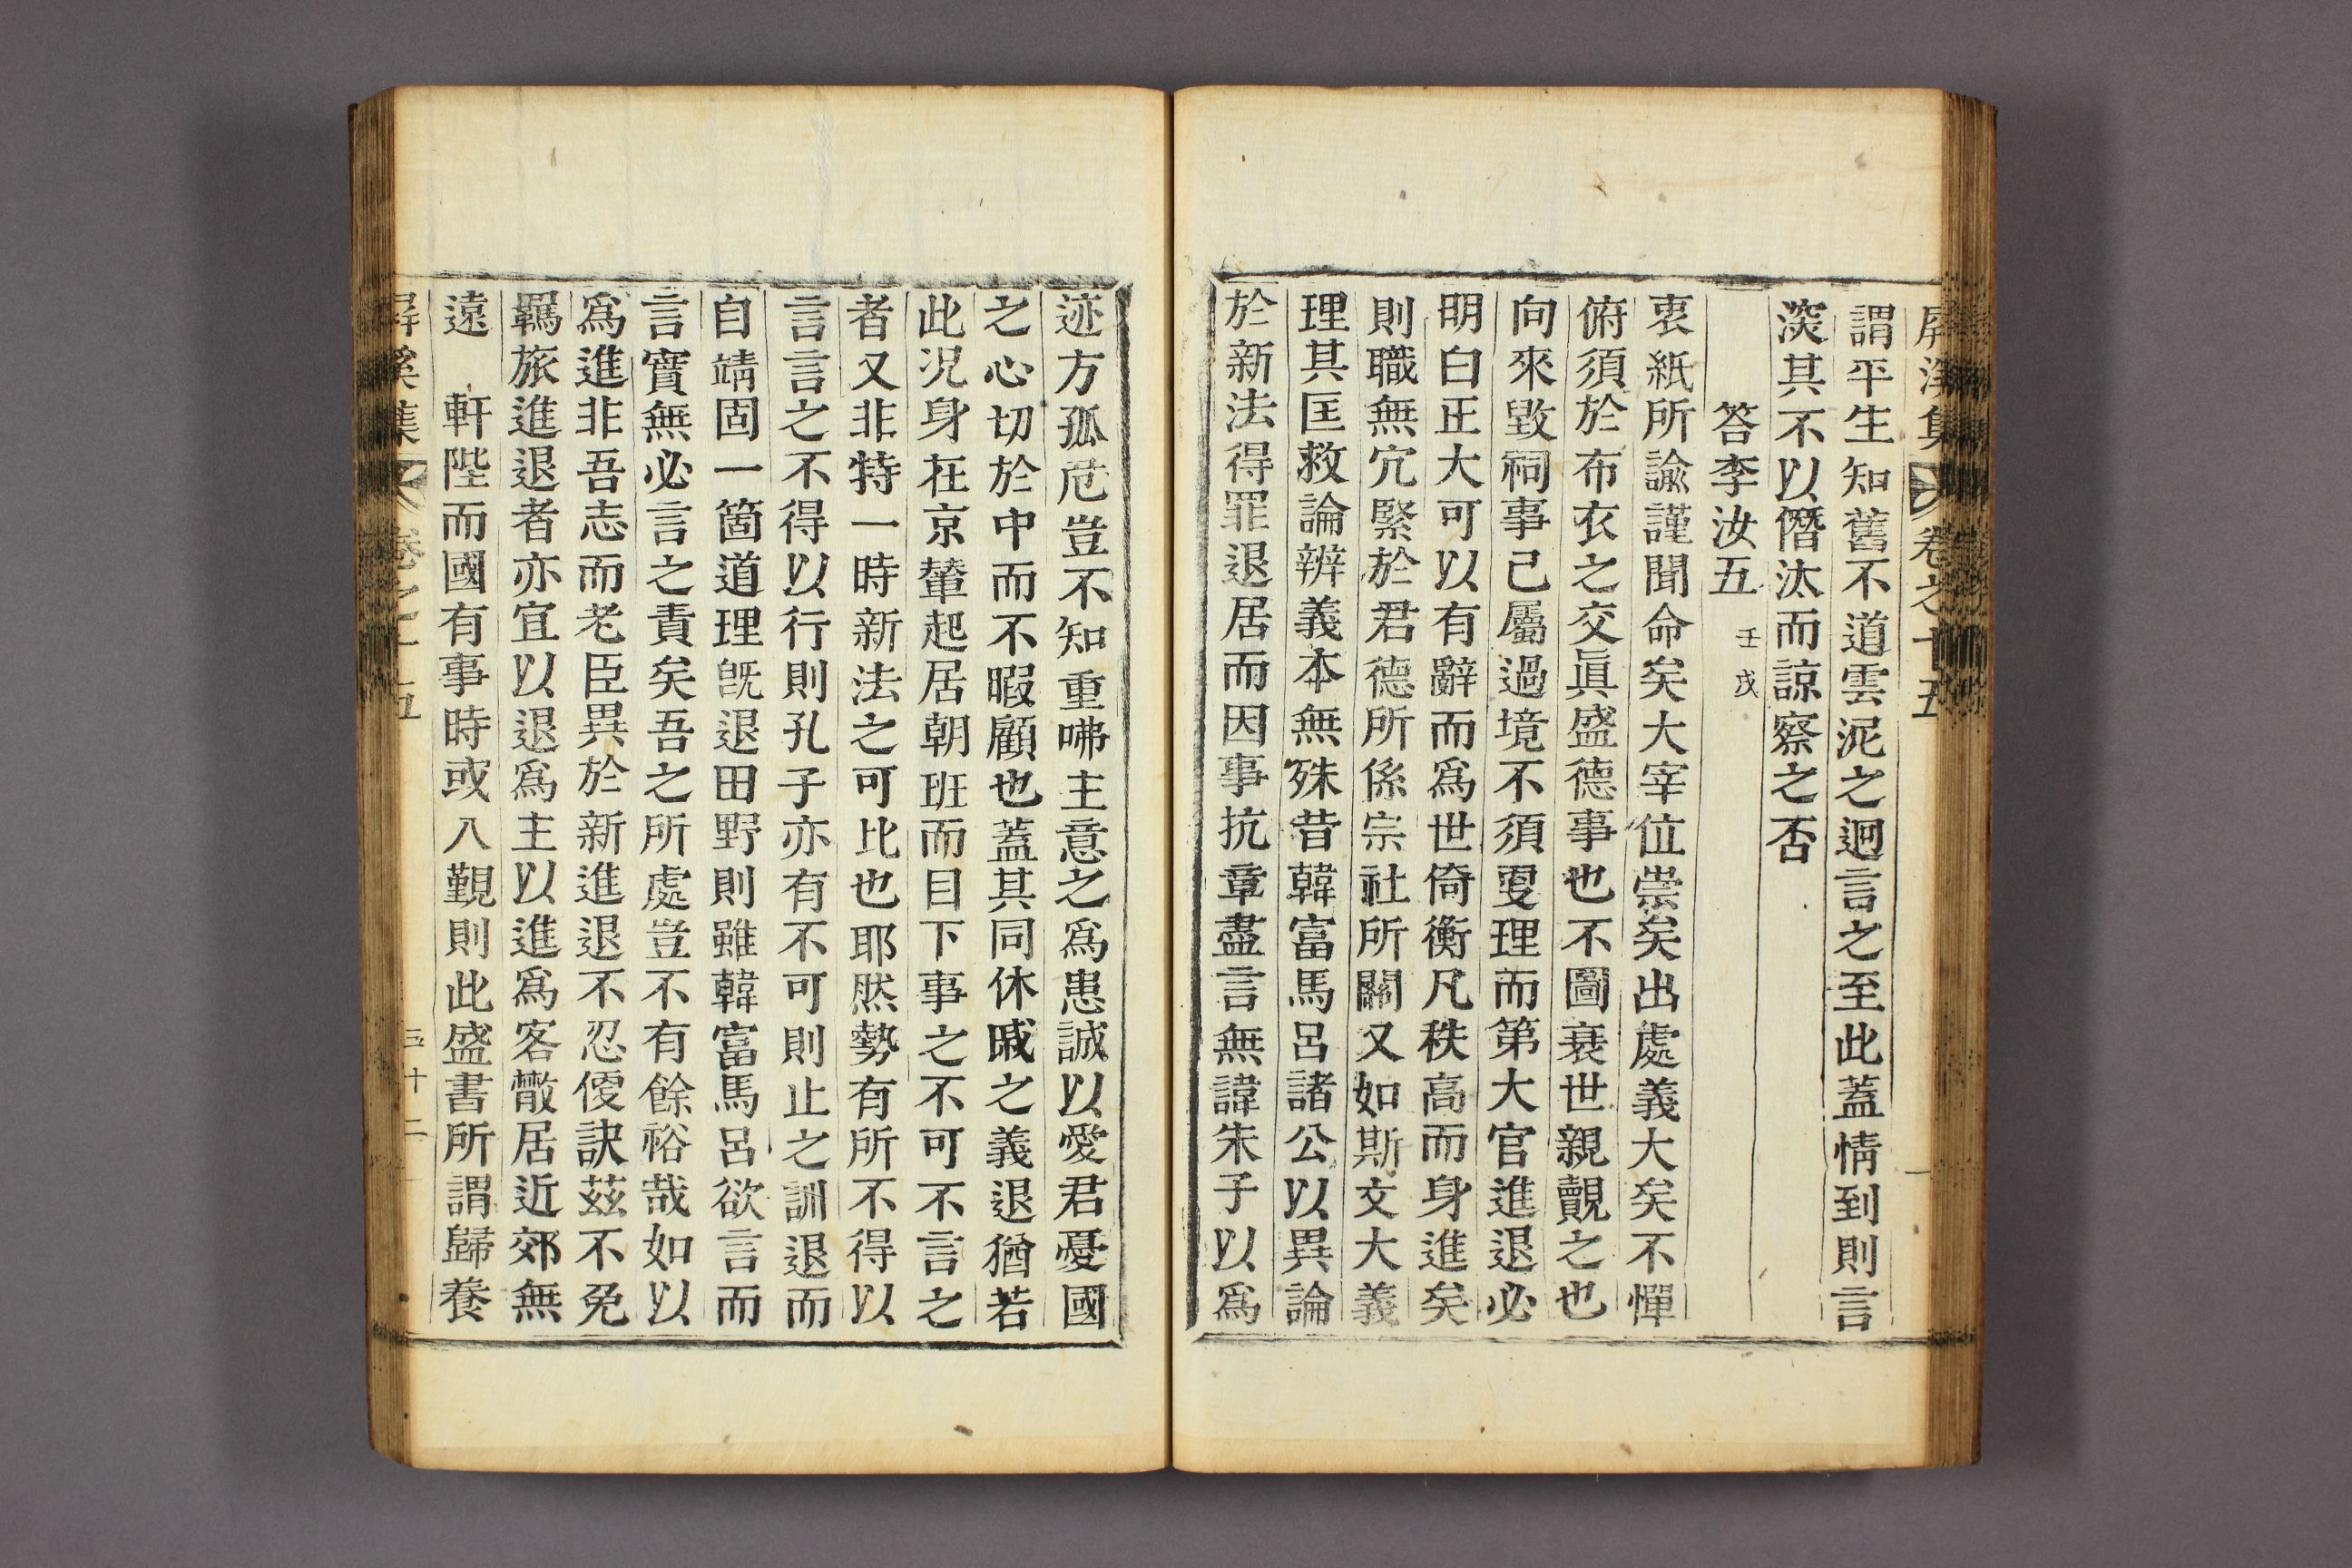 屏溪集 卷之十五
謂平生知舊不道雲泥之迥言之至此蓋情到則言
淡其不以僭汰而諒察之否
答李汝五 壬戌
衷紙所諭謹聞命矣大宰位崇矣出處義大矣不憚
俯須於布衣之交眞盛德事也不圖衰世親覿之也
向來毀祠事已屬過境不須更理而第大官進退必
明白正大可以有辭而爲世倚衡凡秩高而身進矣
則職無宂緊於君德所係宗社所關又如斯文大義
理其匡救論辨義本無殊昔韓富馬呂諸公以異論
於新法得罪退居而因事抗章盡言無諱朱子以爲
迹方孤危豈不知重咈主意之爲患誠以愛君憂國
之心切於中而不暇顧也蓋其同休戚之義退猶若
此况身在京輦起居朝班而目下事之不可不言之
者又非特一時新法之可比也耶然勢有所不得以
言言之不得以行則孔子亦有不可則止之訓退而
自靖固一箇道理旣退田野則雖韓富馬呂欲言而
言實無必言之責矣吾之所處豈不有餘裕哉如以
爲進非吾志而老臣異於新進退不忍便訣茲不免
羈旅進退者亦宜以退爲主以進爲客憿居近郊無
遠 軒陛而國有事時或入覲則此盛書所謂歸養
屏溪集 卷之十五 五十二